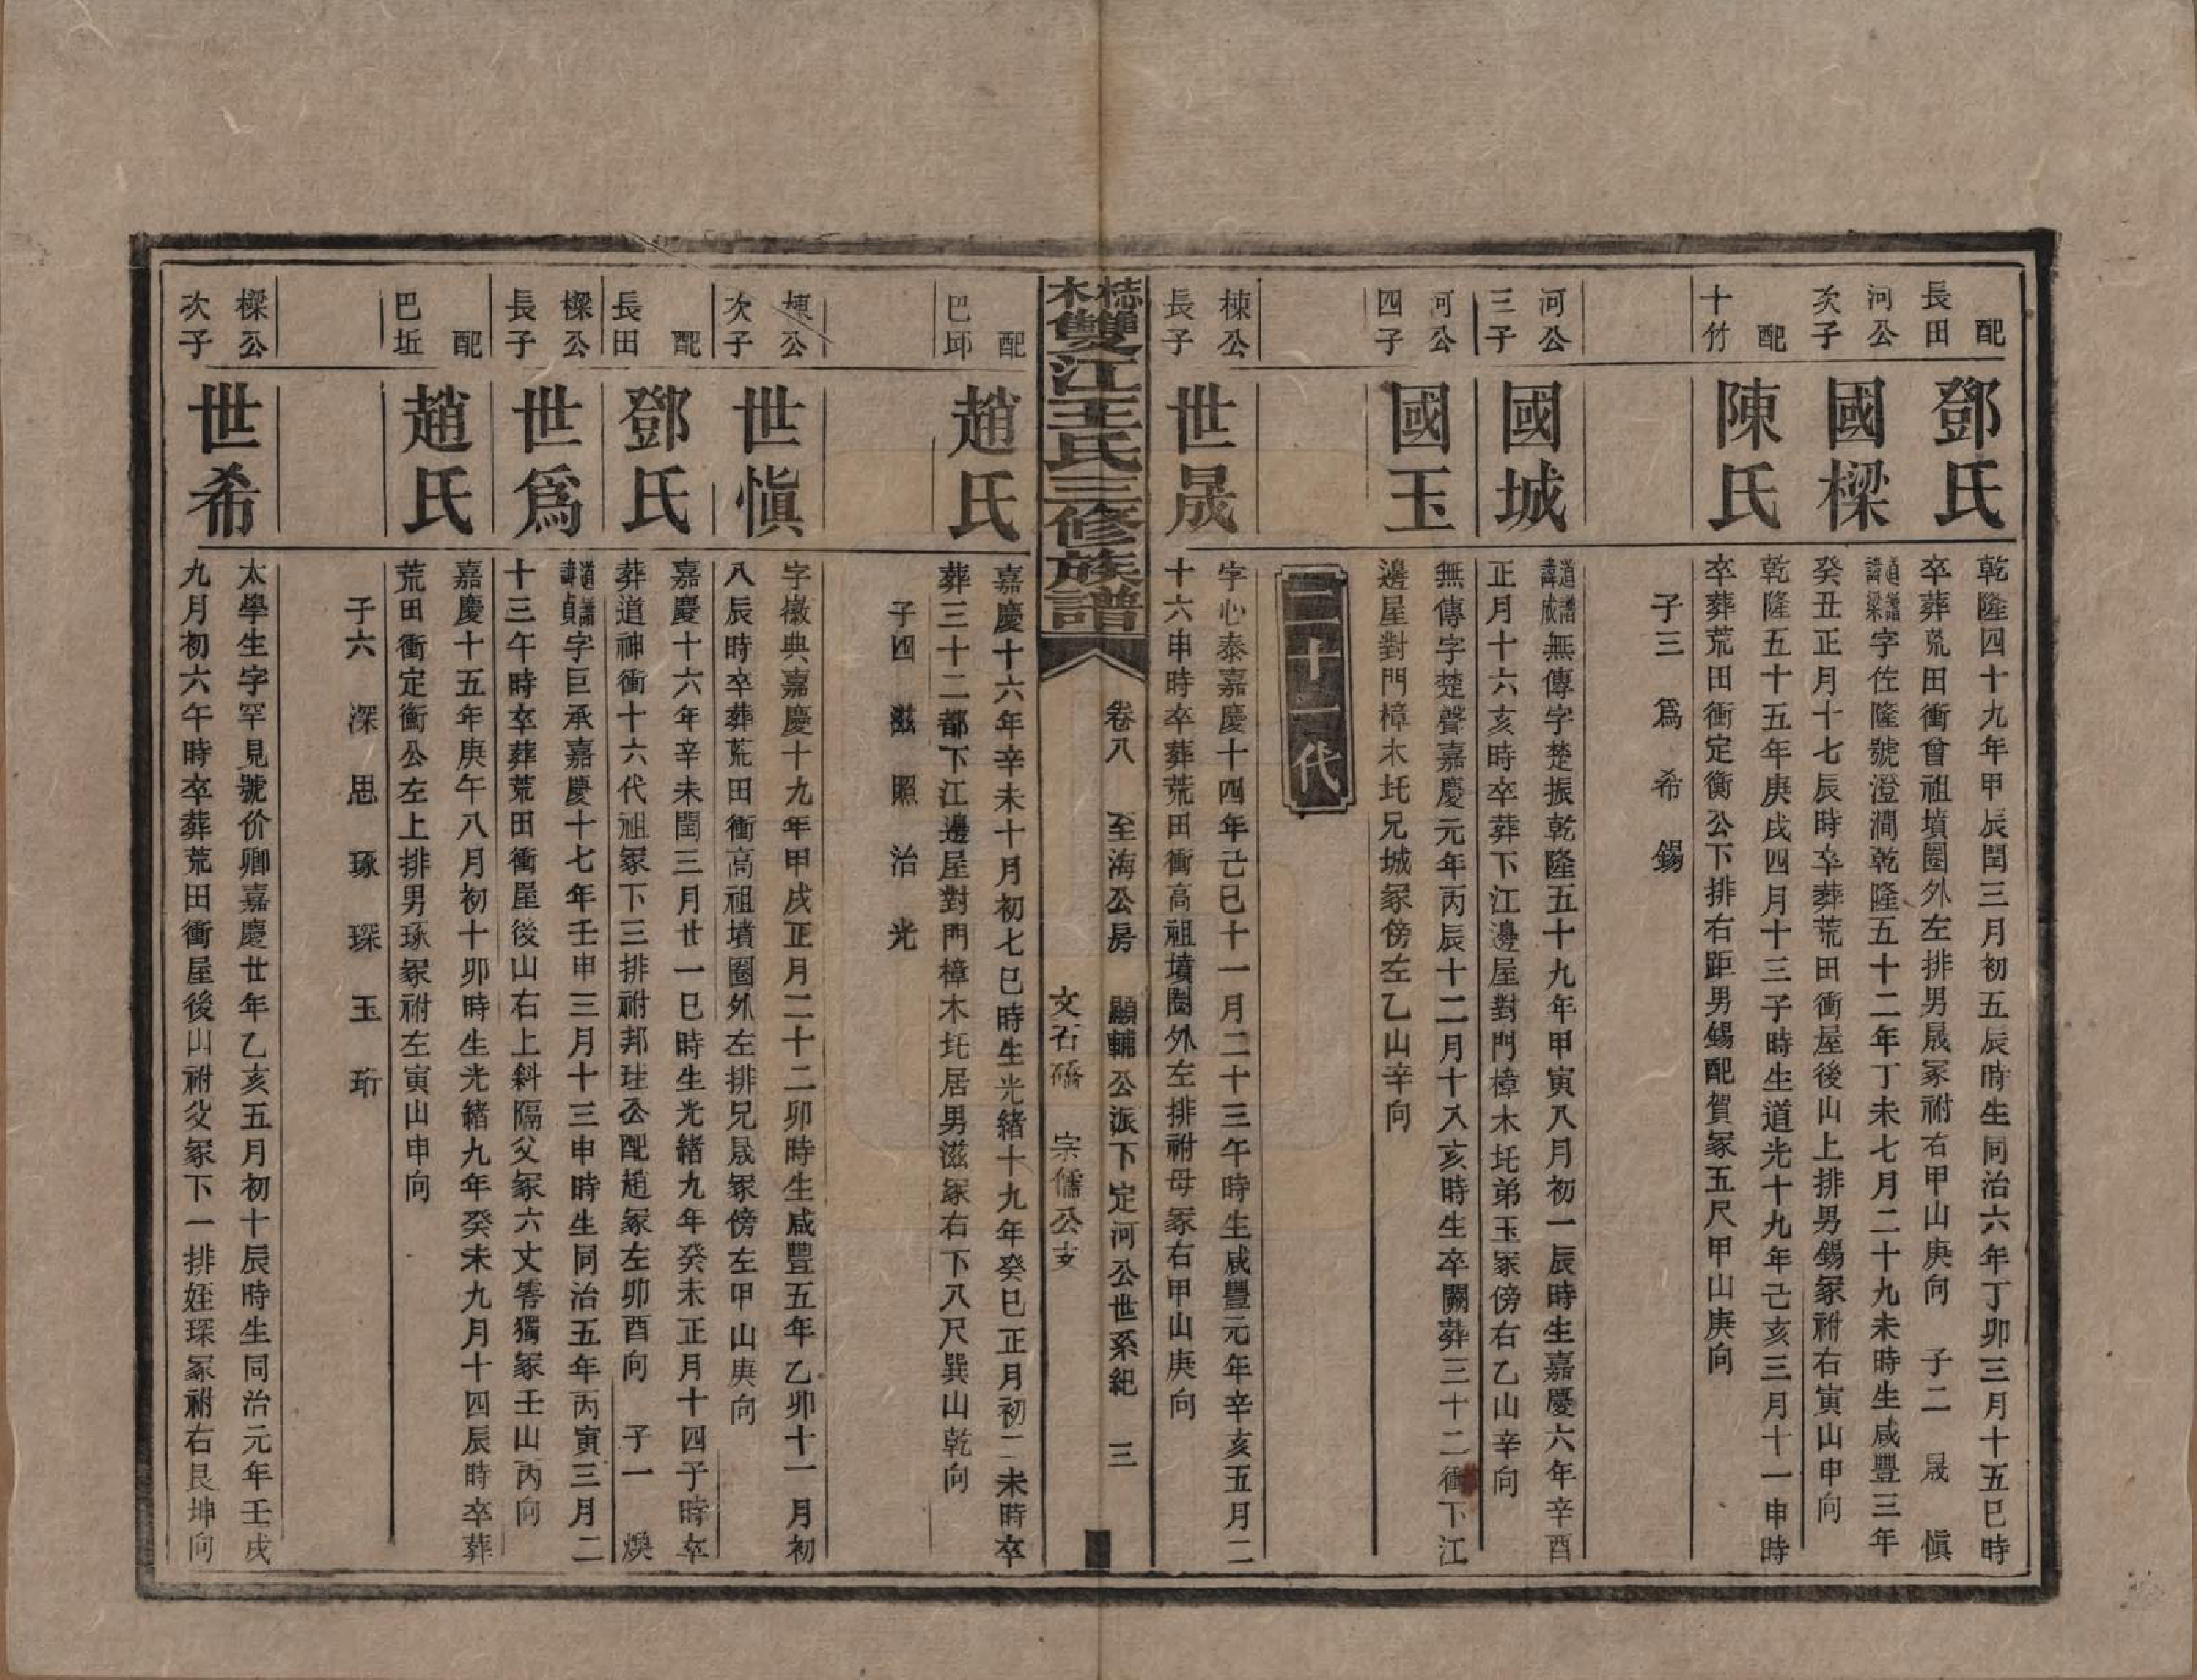 配長田
鄧氏
乾隆四十九年甲辰閏三月初五辰時生同治六年丁卯三月十五巳時
卒葬荒田衝曾祖墳圈外左排男晟冢祔右甲山庚向　子二　晟　愼
河公次子
國樑
道譜諱梁字佐隆號澄澗乾隆五十二年丁未七月二十九未時生咸豐三年
癸丑正月十七辰時卒葬荒田衝屋後山上排男錫冢祔右寅山申向
配十竹
陳氏
乾隆五十五年庚戌四月十三子時生道光十九年己亥三月十一申時
卒葬荒田衝定衡公下排右距男錫配賀冢五尺甲山庚向
子三　爲　希　錫
河公三子
國城
道譜諱成譜無傳字楚振乾隆五十九年甲寅八月初一辰時生嘉慶六年辛酉
正月十六亥時卒葬下江邊屋對門樟木圫弟玉冢傍右乙山辛向
河公四子
國玉
無傳字楚聲嘉慶元年丙辰十二月十八亥時生卒闕葬三十二衝下江
邊屋對門樟木圫兄城冢傍左乙山辛向
二十一代
棟公長子
世晟
字心泰嘉慶十四年己巳十一月二十三午時生咸豐元年辛亥五月二
十六申時卒葬荒田衝高祖墳圈外左排祔母冢右甲山庚向
梽木雙江王氏三修族譜
卷八　至海公房　顯輔公派下定河公世系紀　三
文石礄　宗儒公支
配巴邱
趙氏
嘉慶十六年辛未十月初七巳時生光緒十九年癸巳正月初二未時卒
葬三十二都下江邊屋對門樟木圫居男滋冢右下八尺巽山乾向
子四　滋　照　治　光
棟公次子
世愼
字徽典嘉慶十九年甲戌正月二十二卯時生咸豐五年乙卯十一月初
八辰時卒葬荒田衝高祖墳圈外左排兄晟冢傍左甲山庚向
配長田
鄧氏
嘉慶十六年辛未閏三月廿一巳時生光緒九年癸未正月十四子時卒
葬道神衝十六代祖冢下三排祔邦珪公配趙冢左卯酉向　子一　煥
樑公長子
世爲
道譜諱貞字巨承嘉慶十七年壬申三月十三申時生同治五年丙寅三月二
十三午時卒葬荒田衝屋後山右上斜隔父冢六丈零獨冢壬山丙向
配巴坵
趙氏
嘉慶十五年庚午八月初十卯時生光緒九年癸未九月十四辰時卒葬
荒田衝定衡公左上排男琢冢祔左寅山申向
子六　深　思　琢　琛　玉　珩
樑公次子
世希
太學生字罕見號价卿嘉慶廿年乙亥五月初十辰時生同治元年壬戌
九月初六午時卒葬荒田衝屋後山祔父冢下一排姪琛冢祔右艮坤向